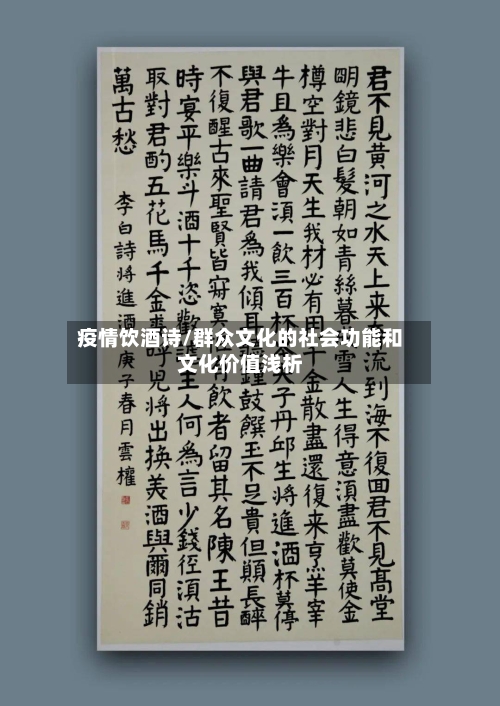 君不見黄河之水天上来流到海不復回君不見髙堂
明鏡悲白髮朝如青絲暮雪人生得意湏盡歡莫使金
樽空對月天生我材必有用千金散盡還復来烹羊宰
牛且為樂會湏一飲三百杯夫子丹邱生將進酒杯莫停
與君歌一曲請君為我傾耳鐘鼓饌玉不足貴但願長醉
不復醒古來聖賢皆寂寞有飲者留其名陳王昔
時宴平樂斗酒十千恣歡主人何為言少錢徑湏沽
取對君酌五花馬千金裘呼児將出換美酒與爾同銷
萬古愁
李白詩將進酒庚子春月雲權
疫情饮酒诗/群众文化的社会功能和
文化价值浅析